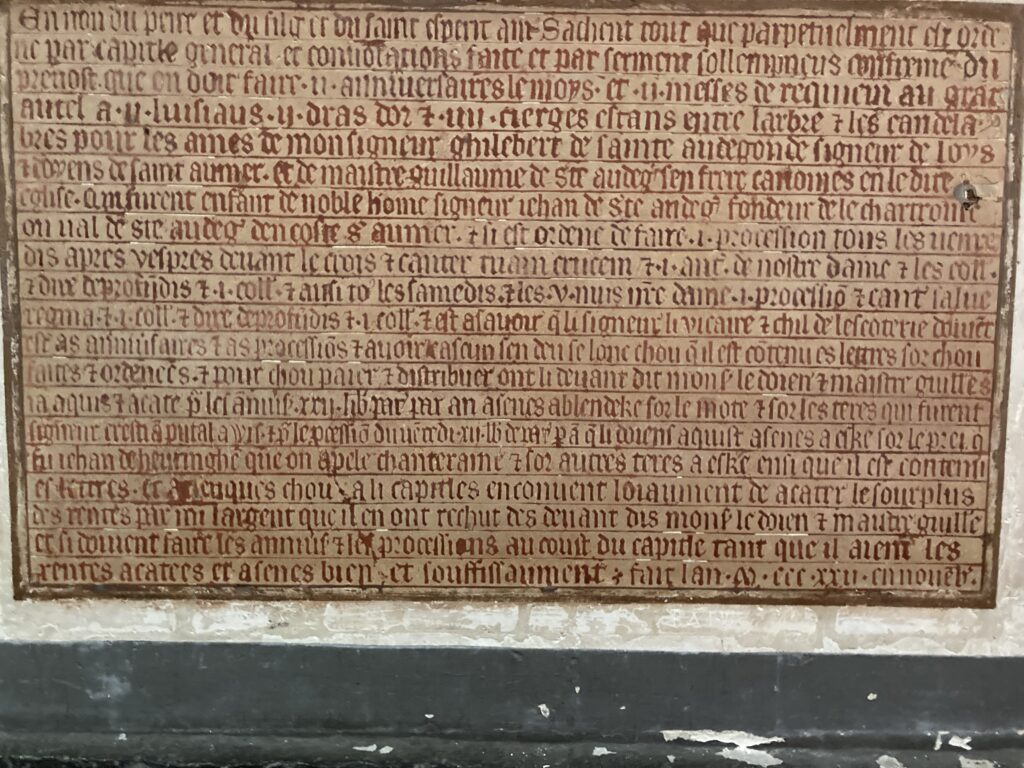 En non du peire et du filz et du saint esperit am. Sachent tout que parpetuelment est orde
ne par capitle general et convocations faite et par serment sollempneus conferme du
prevost que on doit faire .ii. anniversaires le moys. et .ii. messes de requiem au grāt
autel a .ii. luisiaus .ii. dras dor ⁊ .iiii. cierges estans entre larbre ⁊ les candela
bres pour les ames de monsigneur ghilebert de sainte audegonde signeur de loys
⁊ doyens de saint aumer. Et de maistre guillaume de ste audeg' sen frere canonnes en le dite
eglise. qui furent enfant de noble home signeur iehan de Ste audeg' fondeur de le chartrouse
ou ual de Ste audeg' den coste s' aumer. ⁊ si est ordene de faire .i. procession tous les uenre
dis apres vespres devant le crois ⁊ canter tuam crucem ⁊ .i. ant'. de nostre dame ⁊ les coll'.
⁊ dire deprofūdis ⁊ .i. coll'. ⁊ ausi to' les samedis. ⁊ les .v. nuis nr̄e dame .i. processiō ⁊ cant' salue
regina ⁊ .i. coll'. ⁊ dire deprofūdis ⁊ .i. coll'. ⁊ est asavoir q̄ li signeur li vicaire ⁊ chil de lescoterie doiuēt
estre as anniu'saires ⁊ as processiōs ⁊ avoir cascun sen deu se lonc chou q̄ il est cōtenu es lettres sor chou
faites ⁊ ordenees. ⁊ pour chou paier ⁊ distribuer ont li devant dit mons' le doien ⁊ maistre guille s
ia aquis ⁊ acate p̄ les anniu's' .xxii. lib' par' par an asenes ablendeke sor le mote ⁊ sor les teres qui furent
signeur crestiā putal a p̄is. ⁊ p̄ le pcessiō du vēredi .xii. lb' de par' p̄ ā q̄ li doiens aquist asenes a eske sor le prei q̄
fu iehan de heuringhē que on apele chanteraine ⁊ sor autres teres a eske ensi que il est contenu
es lettres. et aveuques chou a li capitles enconvent loiaument de acater le sourplus
des rentes par mi largent que il en ont rechut des devant dis mons' le doien ⁊ maistre guille
et si doivent faire les anniu's' ⁊ les processions au coust du capitle tant que il aient les
rentes acatees et asenes bien et souffissaument ⁊ fait lan .M. ccc .xxii. en nouēb'.